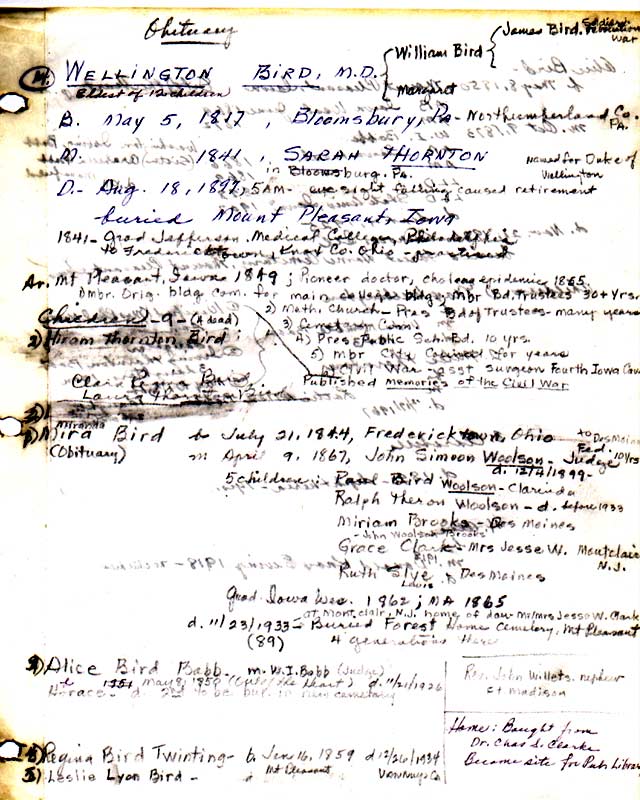 Obituary
James Bird. Soldier Revolution War
William Bird
Margaret
4. WELLINGTON BIRD, M.D.
Eldest of 12 children
B. May 5, 1817, Bloomsbury, Pa - Northumberland Co. PA.
M. 1841, SARAH THORNTON
in Bloomsburg, Pa.
Named for Duke of Wellington
D. - Aug. 18, 1897, 5AM - eye sight failing caused retirement
buried Mount Pleasant, Iowa
1841 - Grad Jefferson Medical College, Philadelphia
to Fredericktown, Knox Co. Ohio - practised
Ar. Mt Pleasant, Iowa 1849; Pioneer doctor, cholera epidemic 1855.
1) mbr. Orig. bldg com. for main college bldg; Mbr Bd. Trustees 30+ yrs.
Children 9 - (4 dead)
2) Meth. Church - Pres Bd of Trustees - many years
3) Cemetery Comm
2) Hiram Thornton Bird
4) Pres Public Sch. Bd. 10 yrs.
5) Mbr City Council for years
6) Civil War - asst surgeon Fourth Iowa Cav
Published memories of the Civil War
Miranda
Mira Bird b July 21, 1844, Fredericktown, Ohio
(Obituary) m April 9, 1867, John Simeon Woolson - Judge
to Des Moines Fed. 10 yrs
d. 12/4/1899 -
5 children: Paul Bird Woolson - Clarinda
Ralph Theron Woolson - d. before 1933
Miriam Brooks - Des Moines
- John Woolson Brooks
Grace Clark - Mrs Jesse W. Montclair N.J.
Ruth Slye Des Moines
Grad. Iowa Wes. 1862; MA 1865
at Montclair, N.J. home of dau - Mr/mrs Jesse W. Clark
d. 11/23/1933 - Buried Forest Home Cemetery, Mt Pleasant
(89) 4 generations there
Alice Bird Babb - m. W.I. Babb (Judge)
May 8, 1850 d. 11/21/1926
Horace - d. 2nd to be bur. in new cemetery
Rev. John Willets. nephew
Ft Madison
Home: Bought from
Dr. Chas S. Clarke
Became site for Pub Library
Regina Bird Twinting - b Jan 16, 1859 d 12/26/1934
Mt Pleasant Van Nuys Ca
5) Leslie Lyon Bird -